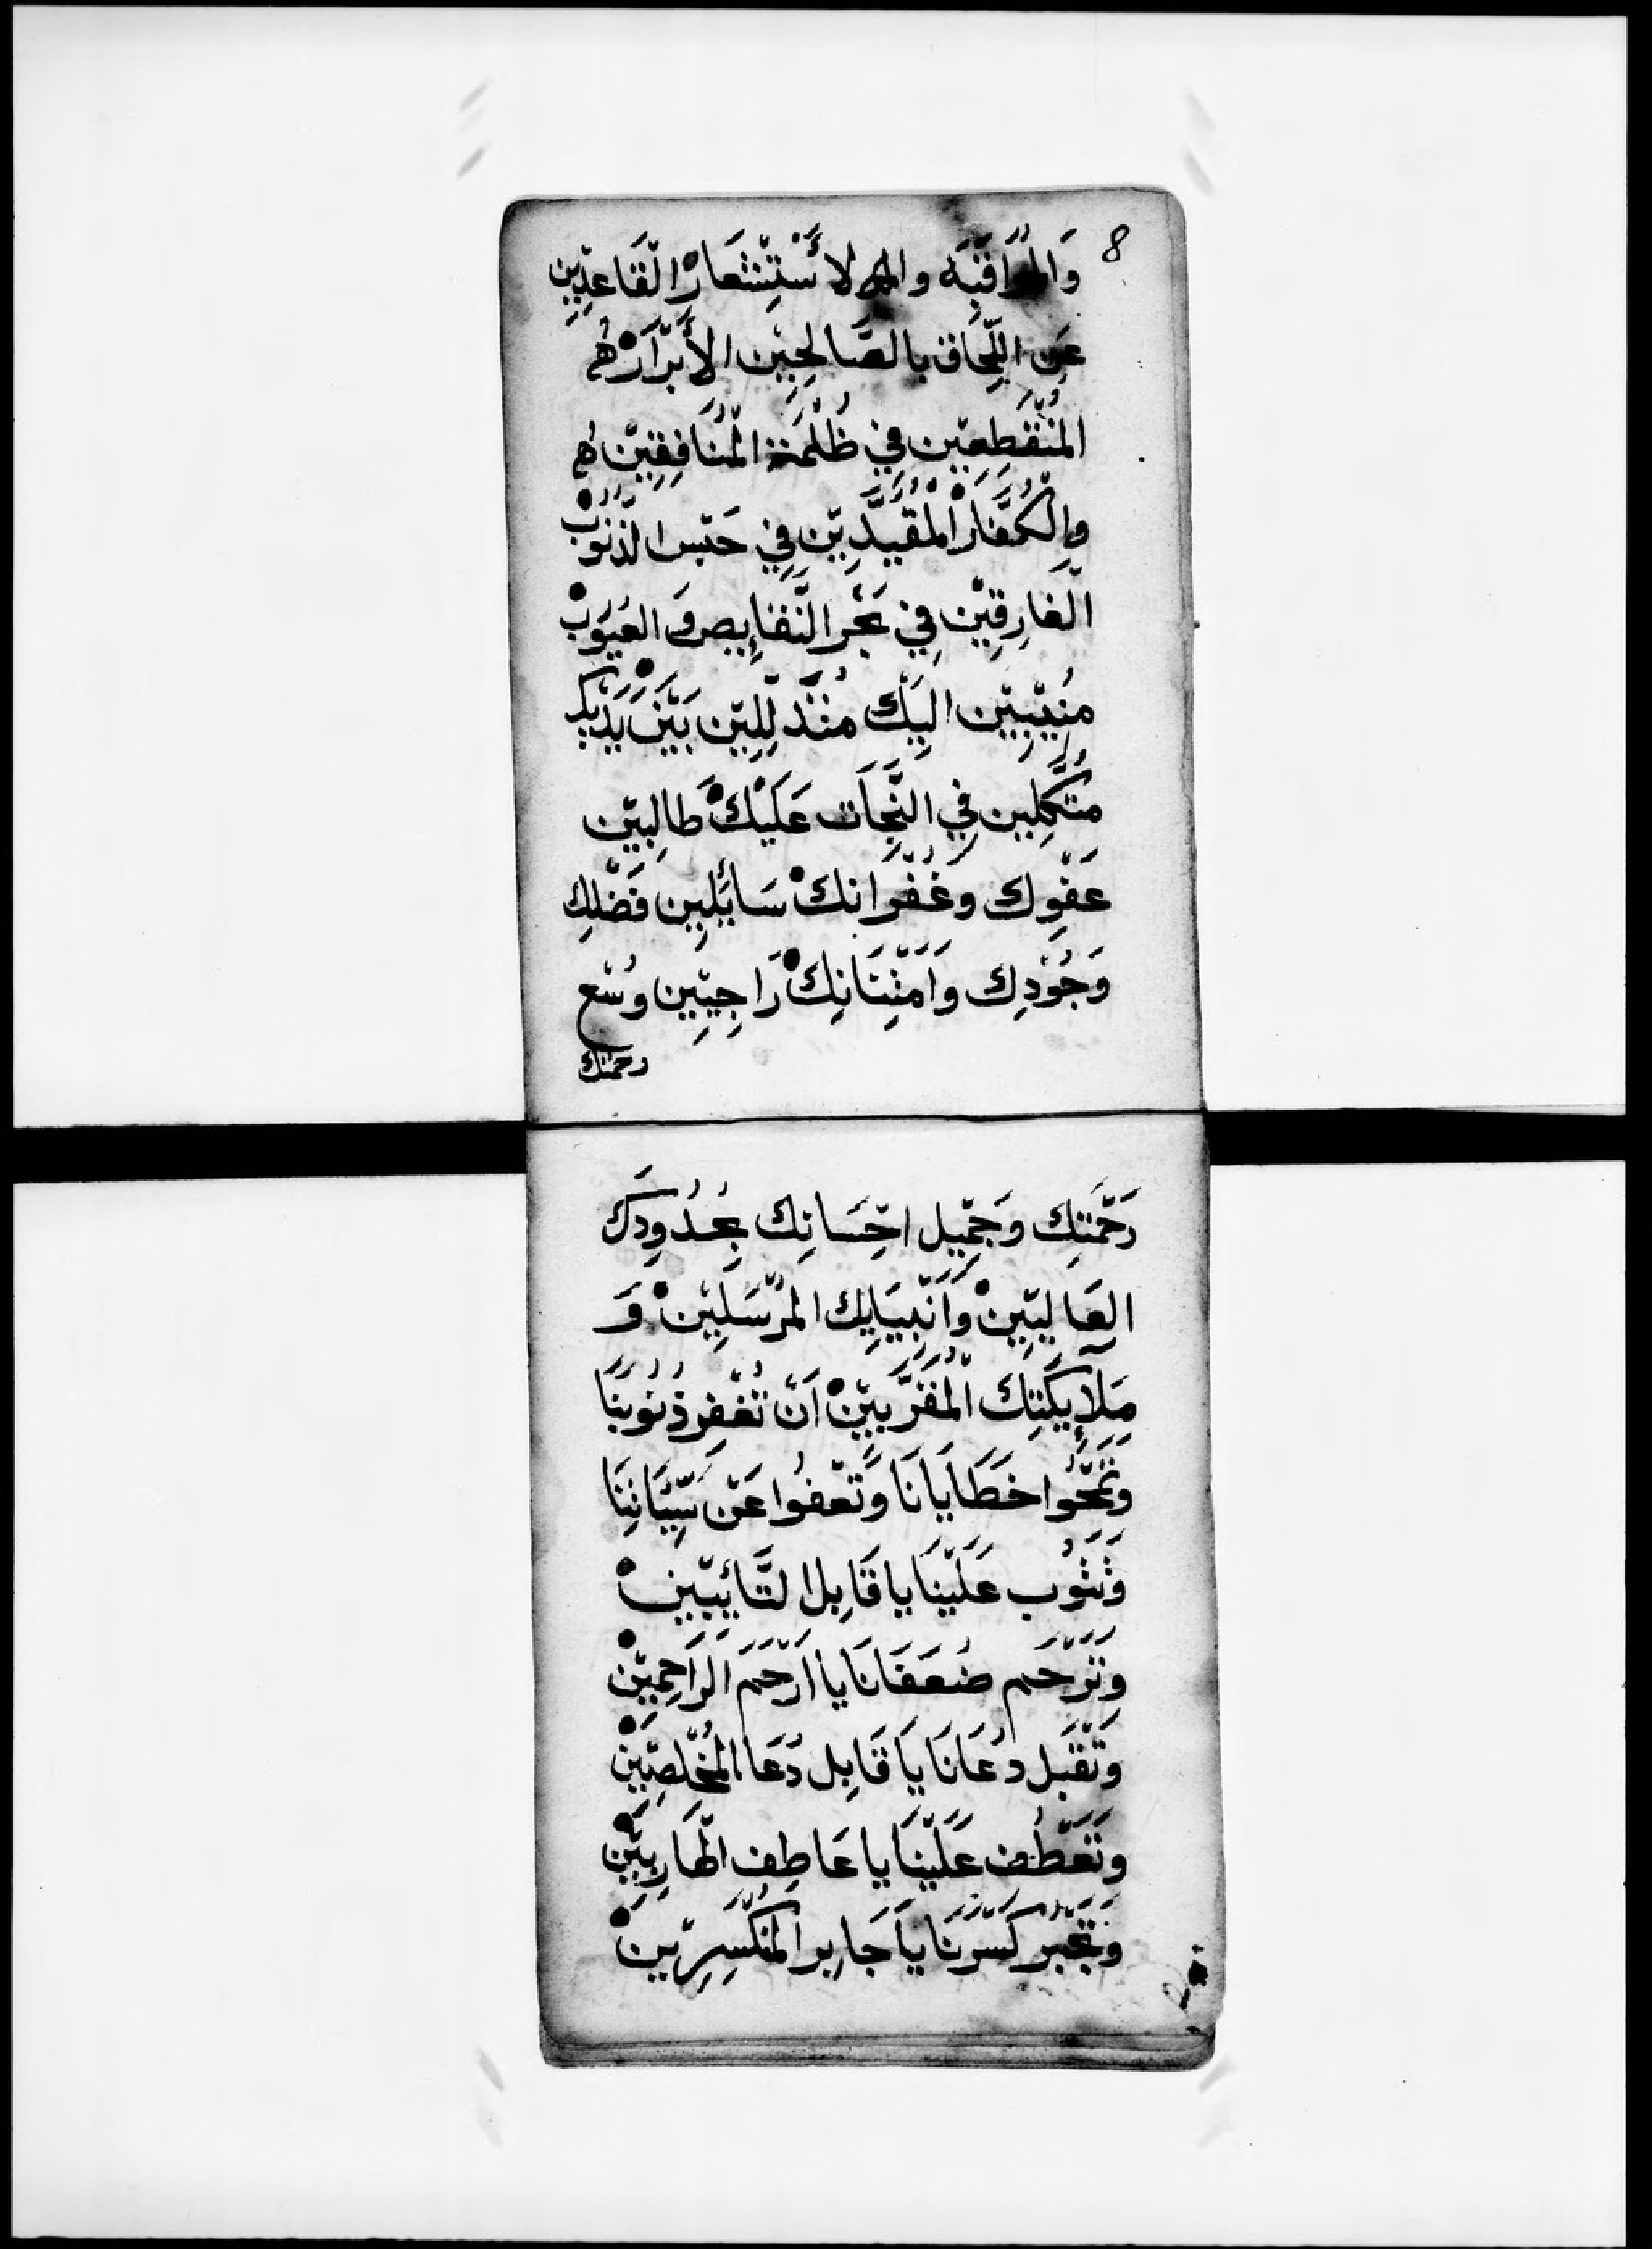 8
وَالمُرَاقَبَه والاسْتِشْعَارْ القَاعِدِين
عَنِ اللِّحَاق بالصَّالِحِيْن الأَبْرَارْ هُم
المُنْقَطِعِيْن فِي ظُلْمَة المُنَافِقِيْن هُم
وَالكُفَّارْ المُقَيَّدِيْن فِي حَبْس الذُّنُوبْ
الغَارِقِيْن فِي بَحْر النَّقَايِص وَ العُيُوبْ
مُنِيْبِيْن الِيَكْ مُتَذَلِّلِيْن بَيْنَ يَدَيْكْ
مُتَّكِلِين فِي النِّجَات عَلَيْكْ طَالِبِيْن
عَفْوِك وغُفْرَانَكْ سَائِلِين فَضْلِك
وَجُوْدِك وَامْتِنَانِكْ رَاجِيِين وُسْع
رحمتك
رَحْمَتِك وَجَمِيْل احْسَانِك بِحُدُودِكَ
العَالِيِيْنْ وَانْبِيَايِك المُرْسَلِيْنْ وَ
مَلآيِكَتِك المُقَرَّبِيْنْ اَنْ تَغْفِر ذُنُوبَنَا
وَتَمْحُوا خَطَايَانَا وَتَعْفُوا عَنْ سَيِّئَاتِنَا
وَتَتُوب عَلَيْنَا يا قَابِل التَّائِبِيْنْ
وَتَرْحَم ضُعَفَانَا يا ارْحَمَ الرَاحِمِيْنْ
وَتَقْبَل دُعَانَا يَا قَابِل دُعَا المُخْلِصِيْنْ
وَتَعْطُف عَلَيْنَا يا عَاطِف الهَارِبِيْنْ
وَتَجْبُر كَسْرَنَا يا جَابِر المُنْكَسِرِيْنْ